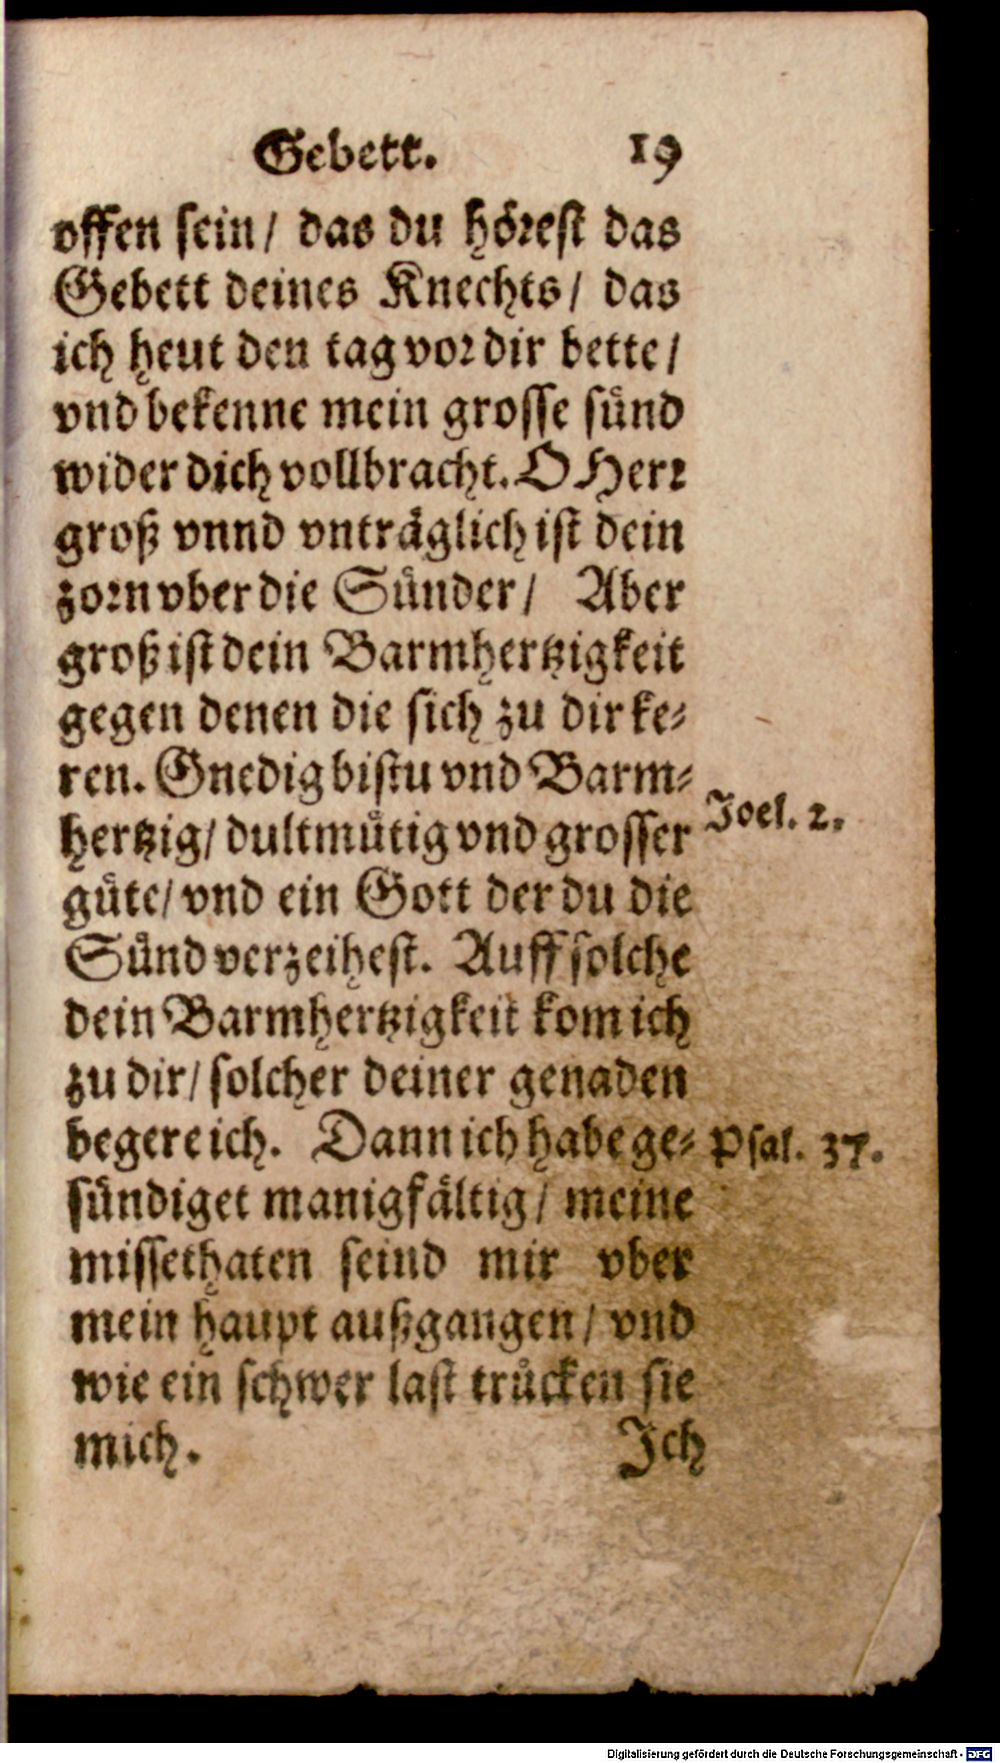 Gebett. 19
offen sein/ das du hörest das
Gebett deines Knechts/ das
ich heut den tag vor dir bette/
vnd bekenne mein grosse sünd
wider dich vollbracht. O Herr
groß vnnd vnträglich ist dein
zorn vber die Sünder/ Aber
groß ist dein Barmhertzigkeit
gegen denen die sich zu dir ke-
ren. Gnedig bistu vnd Barm-
hertzig/ dultmütig vnd grosser
Joel. 2.
güte/ vnd ein Gott der du die
Sünd verzeihest. Auff solche
dein Barmhertzigkeit kom ich
zu dir/ solcher deiner genaden
begere ich. Dann ich habe ge-
Psal. 37.
sündiget manigfältig/ meine
missethaten seind mir vber
mein haupt außgangen/ vnd
wie ein schwer last trücken sie
mich. Ich
Digitalisierung gefördert durch die Deutsche Forschungsgemeinschaft - DFG